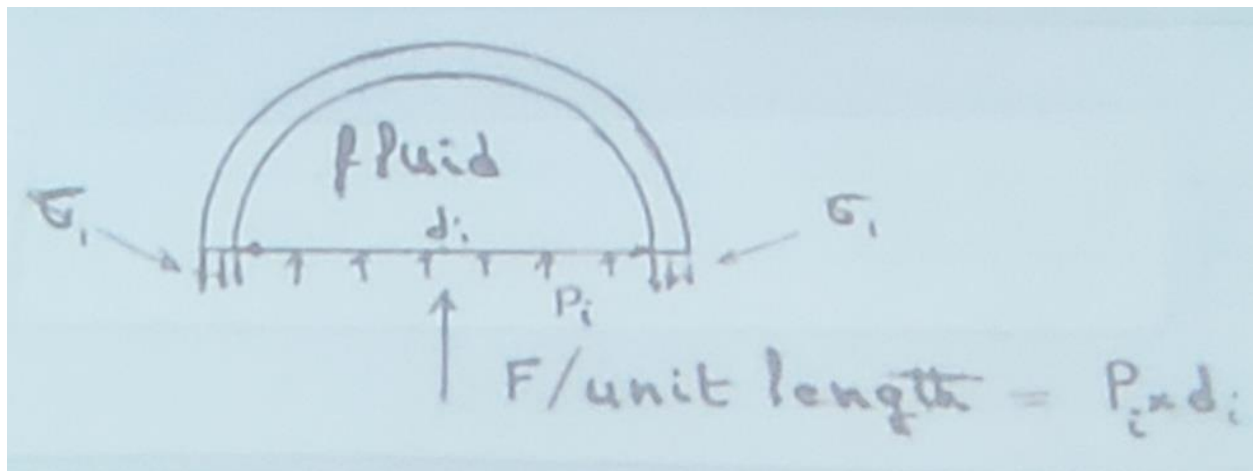 fluid
σ₁ dᵢ σ₁
Pᵢ
F/unit length = Pᵢ × dᵢ